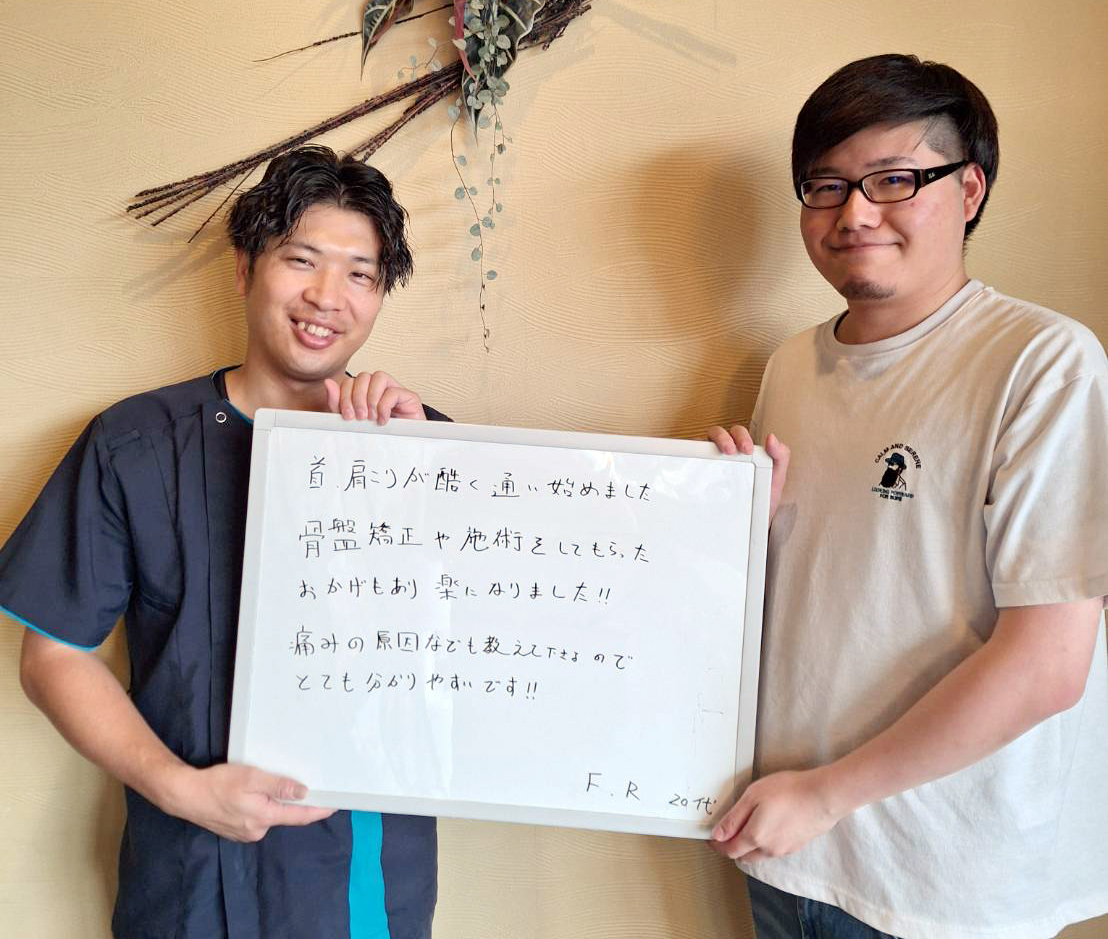 首、肩こりが酷く通い始めました
骨盤矯正や施術をしてもらった
おかげもあり楽になりました!!
痛みの原因なども教えて下さるので
とても分かりやすいです!!
F.R 20代
CALM AND SERENE
LOOKING FORWARD
FOR MORE